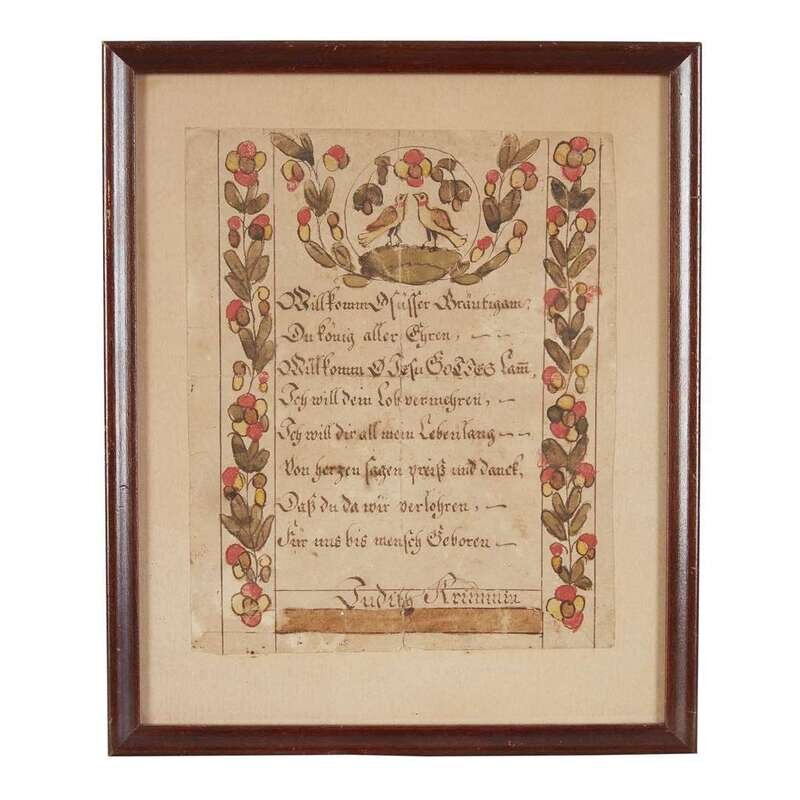 Willkomm O süsser Bräutigam;
Du könig aller Ehren, – –
Willkomm O Jesu GOTTES Lam̅,
Ich will dein Lob vermehren, –
Ich will dir all mein Lebenlang – –
Von herzen sagen preiß und danck,
Daß du da wir verlohren, –
Für uns bis mensch Geboren –
Judith Krümmin